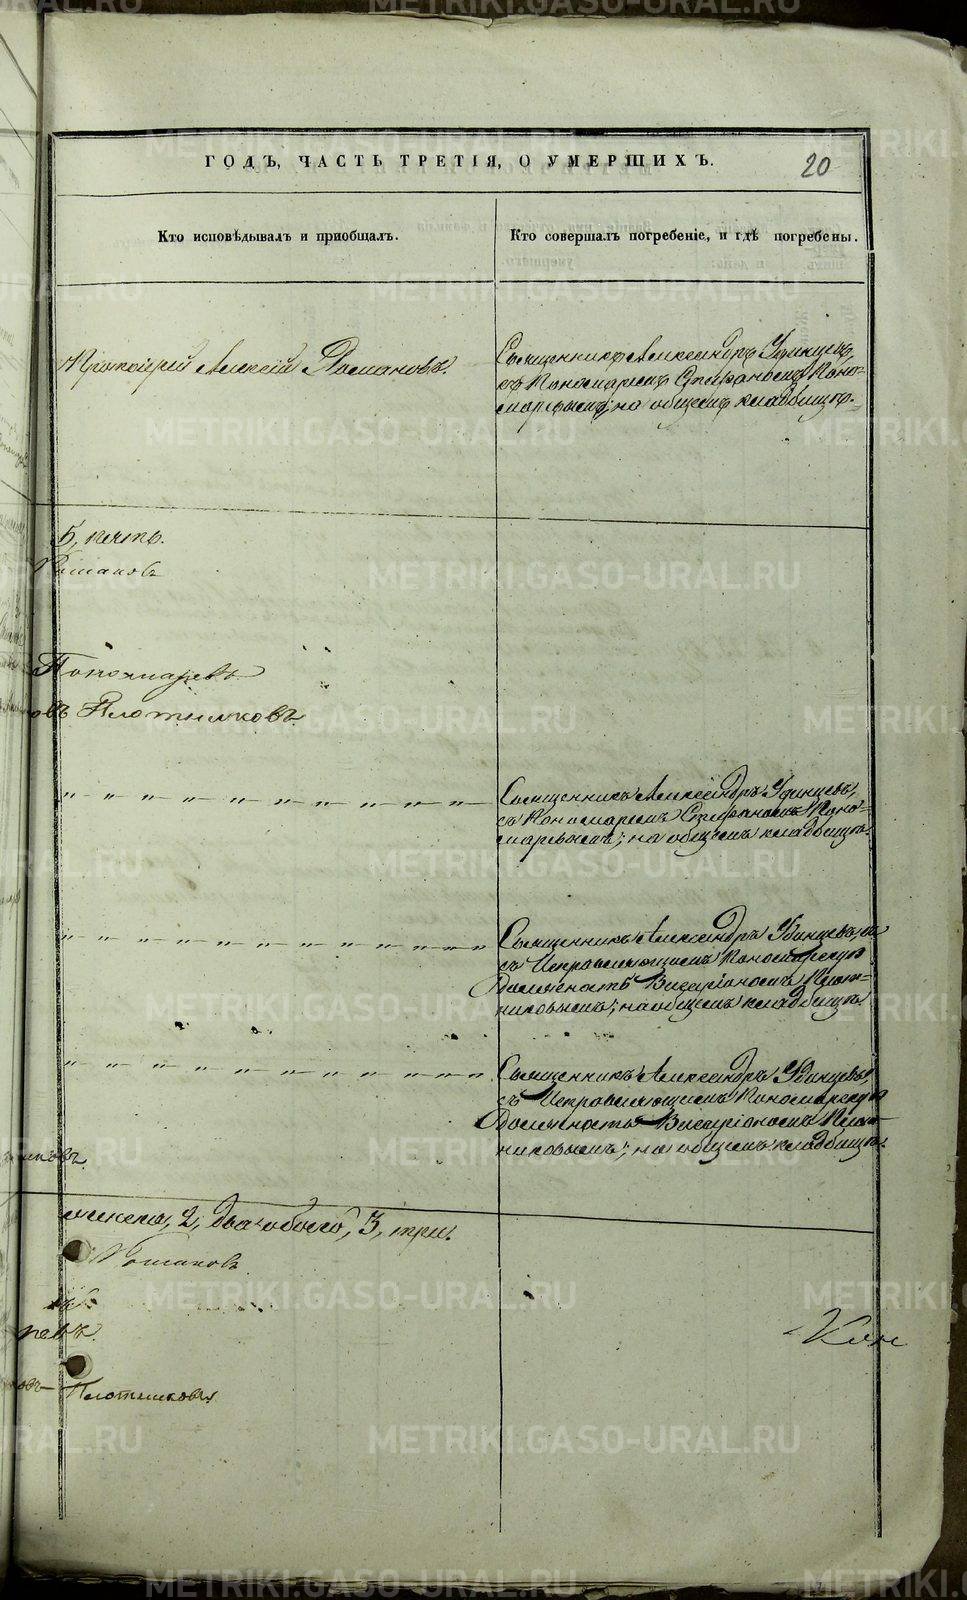 ГОДЪ, ЧАСТЬ ТРЕТІЯ, О УМЕРШИХЪ.
20
Кто исповѣдывалъ и приобщалъ.
Кто совершалъ погребеніе, и гдѣ погребены.
Протоіерей Алексій Романовъ.
Священникъ Александръ Удинцевъ,
съ Пономаремъ Стефаномъ Поно-
маревымъ; на общемъ кладбищѣ.
5, пять.
Романовъ
Пономаревъ
овъ Плотниковъ
Священникъ Александръ Удинцевъ,
съ Пономаремъ Стефаномъ Поно-
маревымъ; на общемъ кладбищѣ.
Священникъ Александръ Удинцевъ,
съ Исправляющимъ Пономарскую
Должность Виссаріономъ Плот-
никовымъ; на общемъ кладбищѣ.
Священникъ Александръ Удинцевъ,
съ Исправляющимъ Пономарскую
Должность Виссаріономъ Плот-
никовымъ; на общемъ кладбищѣ.
никовъ.
женска, 2, два обоего, 3, три.
Романовъ
ревъ.
овъ Плотниковъ
METRIKI.GASO-URAL.RU